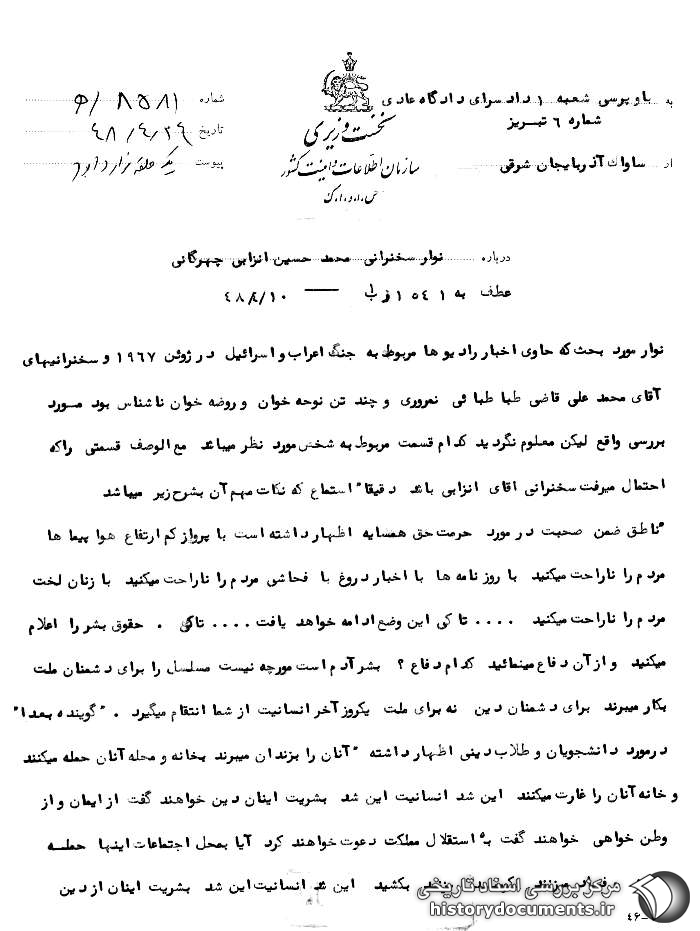 به بازپرسی شعبه ۱ دادسرای دادگاه عادی
شماره ۶ تبریز
از ساواک آذربایجان شرقی
نخست وزیری
سازمان اطلاعات و امنیت کشور
س.ا.و.ا.ک
شماره ۸۵۸۱/ه
تاریخ ۴۸/۴/۲۹
پیوست یک حلقه نوار دارد
درباره نوار سخنرانی محمد حسین انزابی چهرگانی
عطف به ۱۵۴۱ ۴۸/۴/۱۰
نوار مورد بحث که حاوی اخبار رادیو ها مربوط به جنگ اعراب و اسرائیل در ژوئن ۱۹۶۷ و سخنرانیهای
آقای محمد علی قاضی طباطبائی نعروری و چند تن نوحه خوان و روضه خوان ناشناس بود مورد
بررسی واقع لیکن معلوم نگردید کدام قسمت مربوط به شخص مورد نظر میباشد مع الوصف قسمتی راکه
احتمال میرفت سخنرانی اقای انزابی باشد دقیقا" استماع که نکات مهم آن بشرح زیر میباشد
"ناطق ضمن صحبت در مورد حرمت حق همسایه اظهار داشته است با پرواز کم ارتفاع هوا پیما ها
مردم را ناراحت میکنید با روزنامه ها با اخبار دروغ با فحاشی مردم را ناراحت میکنید با زنان لخت
مردم را ناراحت میکنید .... تا کی این وضع ادامه خواهد یافت .... تاکی . حقوق بشر را اعلام
میکنید و از آن دفاع مینمائید کدام دفاع ؟ بشر آدم است مورچه نیست مسلسل را برای دشمنان ملت
بکار میبرند برای دشمنان دین نه برای ملت یکروز آخر انسانیت از شما انتقام میگیرد . "گوینده بعدا"
در مورد دانشجویان و طلاب دینی اظهار داشته "آنان را بزندان میبرند بخانه و محله آنان حمله میکنند
و خانه آنان را غارت میکنند این شد انسانیت این شد بشریت اینان دین خواهند گفت از ایمان و از
وطن خواهی خواهند گفت به استقلال مملکت دعوت خواهند کرد آیا بمحل اجتماعات اینها حمله
بکشید این شد انسانیت این شد بشریت اینان از دین
۴۶-
مرکز بررسی اسناد تاریخی
historydocuments.ir